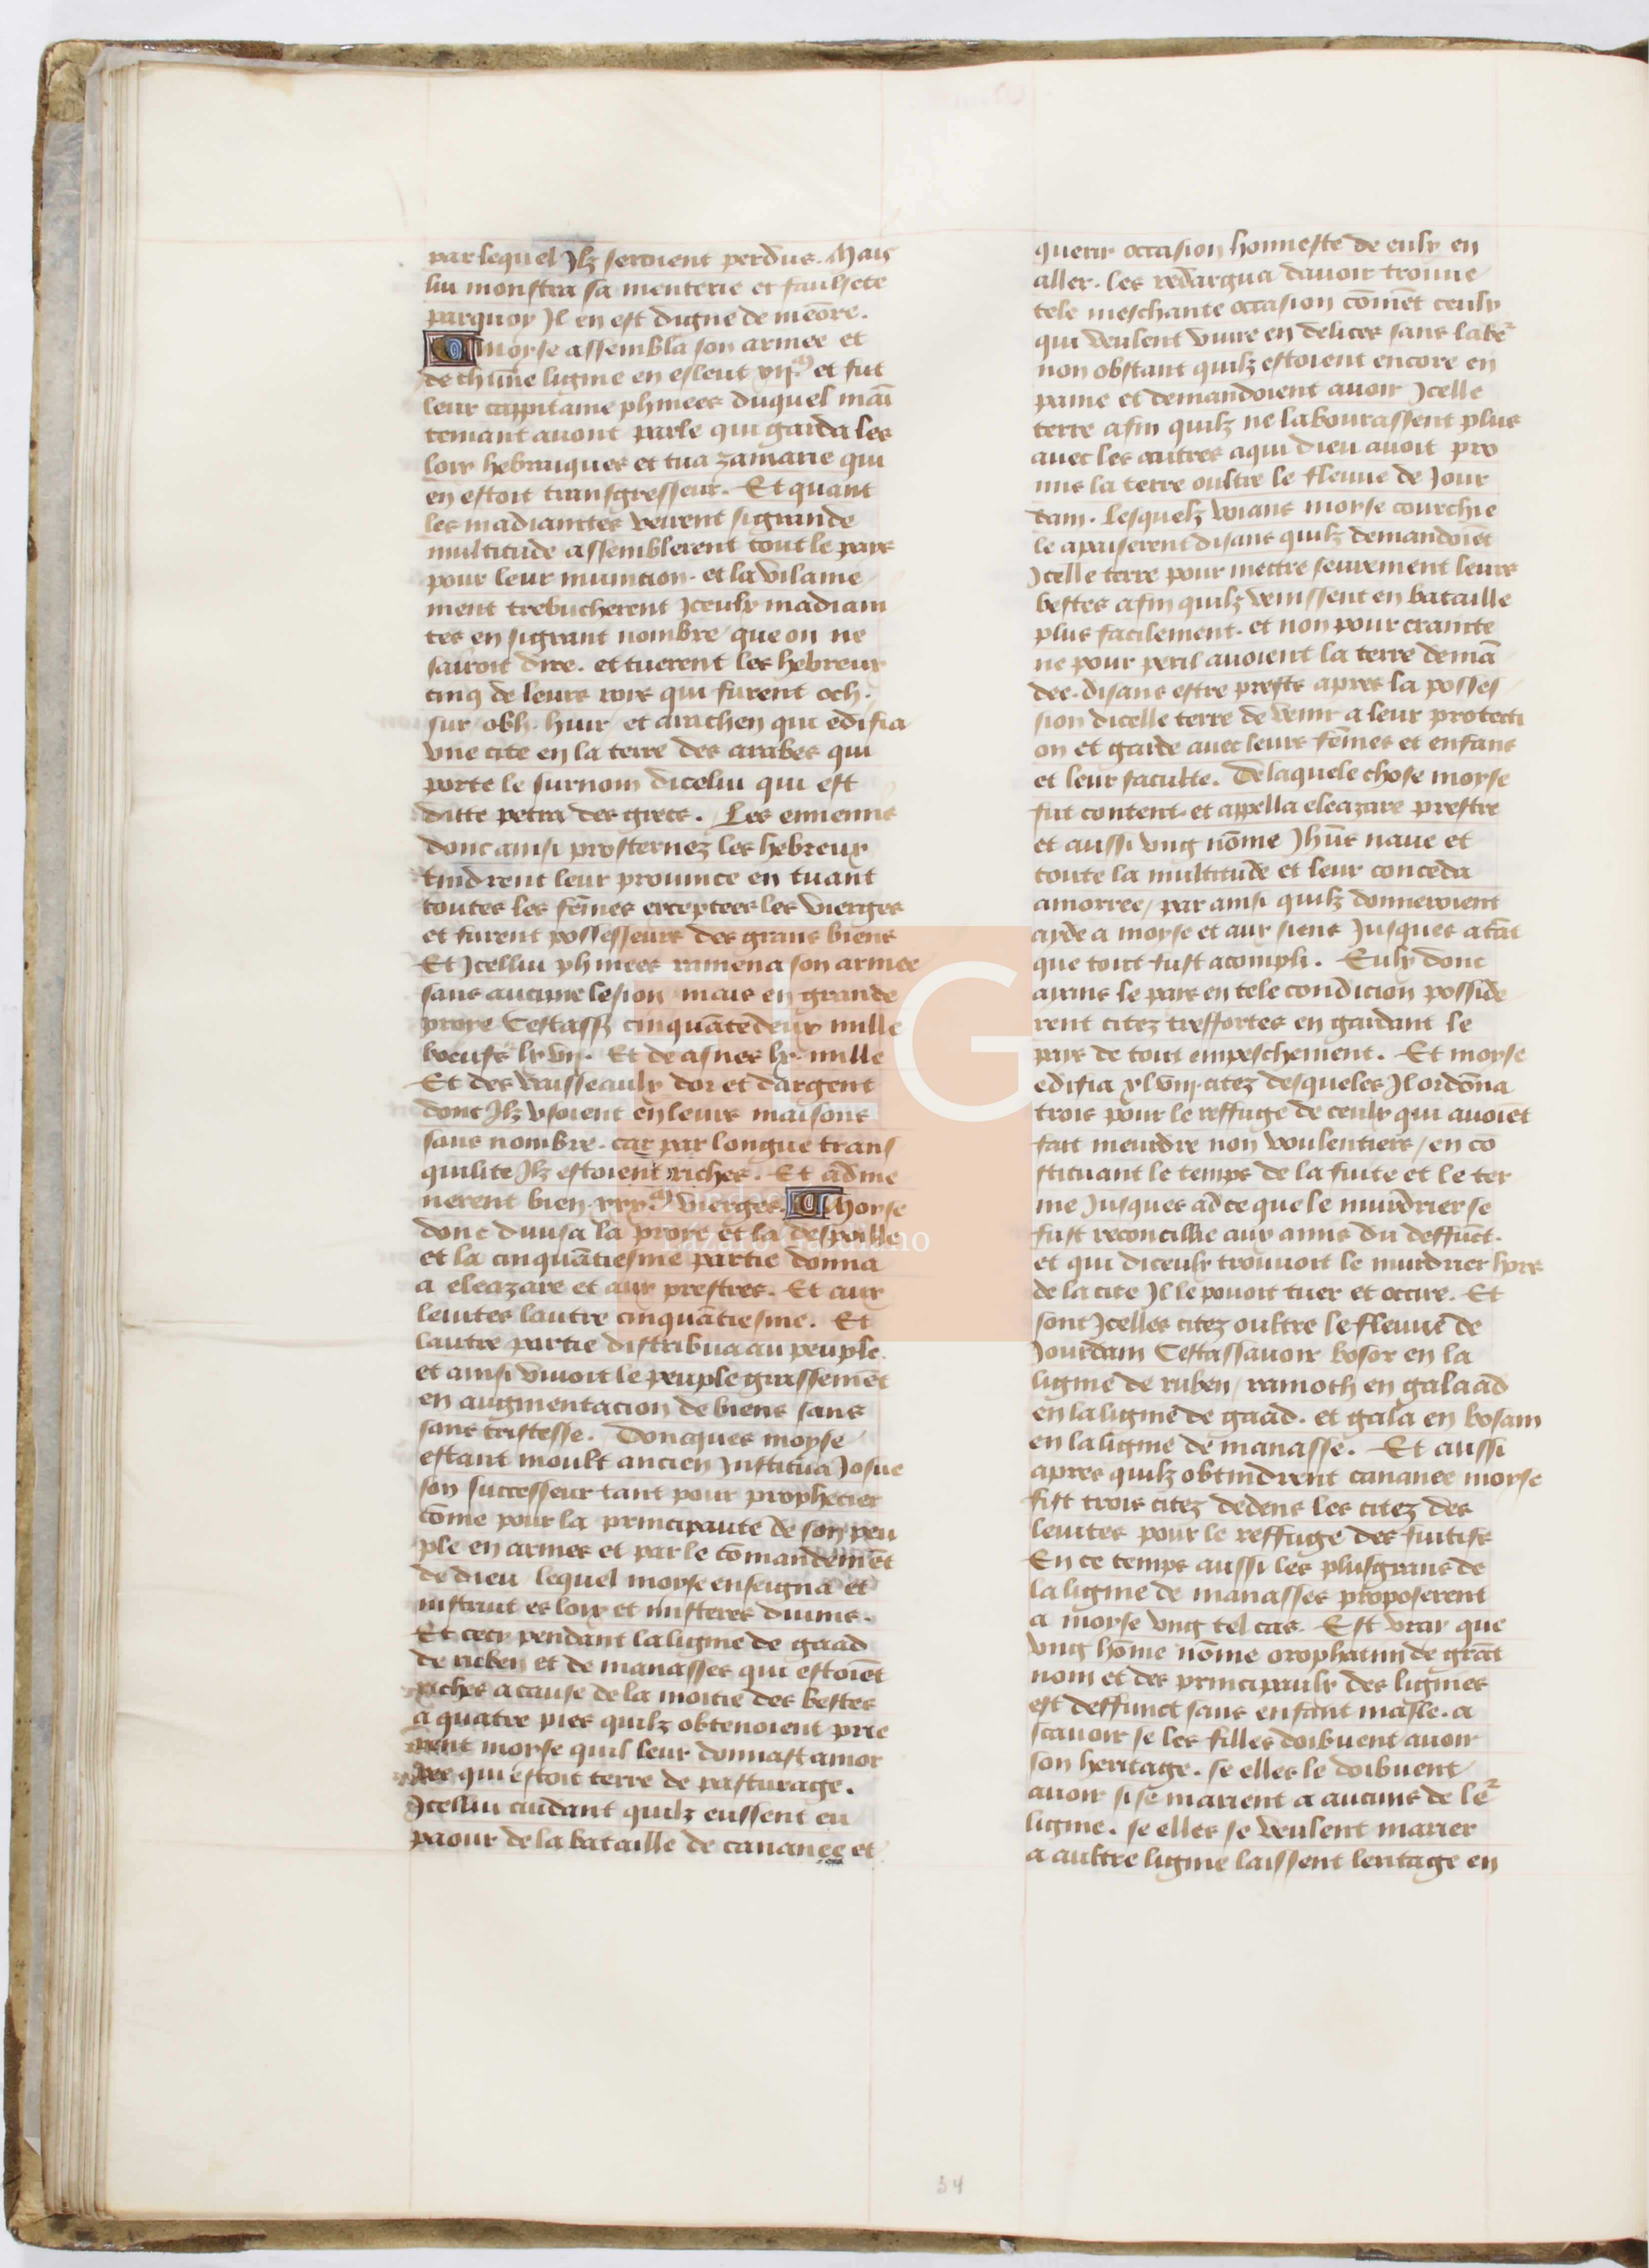 par lequel Jlz seroient perdus. Mais
lui monstra sa menterie et faulsete
parquoy Jl en est digne de meōre.
moyse assembla son armee et
de chūne lignie en esleut xijM et fut
leur cappitaine phinees duquel māī
tenant avont parle qui garda les
loix hebraiques et tua zamarie qui
en estoit transgresseur. Et quant
les madianites veirent si grande
multitude assemblerent tout le pays
pour leur municion. et la vilaine
ment trebucherent Jceulx madiani
tes en si grant nombre que on ne
sairoit dire. et tuerent les hebreux
cinq de leurs roys qui furent och.
sur / obh. hiur / et arachen qui edifia
vne cite en la terre des arabes qui
porte le surnom dicelui qui est
ditte petra des grecs. Les ennemis
donc ainsi prosternez les hebreux
tindrent leur prouince en tuant
toutes les fēmes exceptees les vierges
et furent possesseurs des grans biens
Et Jcellui phinees ramena son armee
sans aucune lesion mais en grande
proye Cestassz cinquātedeux mille
boeufs lxvij. Et de asnes lx. mille
Et des vaisseaulx dor et dargent
dont Jlz vsoient en leurs maisons
sans nombre. car par longue trans
quilite Jlz estoient riches. Et adme
nerent bien. xxxM vierges. Moyse
donc diuisa la proye et la despoille
et la cinquātiesme partie donna
a eleazare et aux prestres. Et aux
leuites lautre cinquātiesme. Et
lautre partie distribua au peuple
et ainsi viuoit le peuple grassemēt
en augmentacion de biens sans
sans tristesse. Doncques moyse
estant moult ancien Jnstitua Josue
son successeur tant pour prophecier
cōme pour la principaute de son peu
ple en armes et par le cōmandemēt
de dieu lequel moyse enseigna et
instruit es loix et misteres diuins.
Et cecy pendant la lignie de gaad
de ruben et de manasses qui estoiēt
riches a cause de la moitie des bestes
a quatre pies quilz obtenoient prie
rent moyse quil leur donnast amor
ree qui estoit terre de pasturage.
Jcellui cuidant quilz eussent eu
paour de la bataille de cananee et
querir occasion honneste de eulx en
aller. les redargua dauoir trouue
tele meschante occasion cōmēt ceulx
qui veulent viure en delices sans labr
non obstant quilz estoient encore en
paine et demandoient auoir Jcelle
terre afin quilz ne labourassent plus
auec les autres a qui dieu auoit pro
mis la terre oultre le fleuue de Jour
dain. Lesquelz voians moyse courchie
le apaiserent disans quilz demandoiēt
Jcelle terre pour mettre seurement leurs
bestes afin quilz venissent en bataille
plus facilement. et non pour crainte
ne pour peril auoient la terre demā
dee. disans estre prests apres la posses
sion dicelle terre de venir a leur protecti
on et garde auec leurs fēmes et enfans
et leur faculte. De laquele chose moyse
fut content. et appella eleazare prestre
et aussi vng nōme Jhūs naue et
toute la multitude et leur conceda
amorree / par ainsi quilz donneroient
ayde a moyse et aux siens Jusques a tāt
que tout fust acompli. Eulx donc
ayans le pays en tele condicion posside
rent citez tresfortes en gardant le
pays de tout empeschement. Et moyse
edifia xlviij. citez desqueles Jl ordōna
trois pour le reffuge de ceulx qui auoiēt
fait meurdre non voulentiers / en cō
stituant le temps de la fuite et le ter
me Jusques ad ce que le murdrier se
fust reconcillie aux amis du deffūct.
et qui diceulx trouuoit le murdrier hors
de la cite Jl le pouoit tuer et occire. Et
sont Jcelles citez oultre le fleuue de
Jourdain Cestassauoir bosor en la
lignie de ruben / ramoth en galaad
en la lignie de gaad. et gala en bosam
en la lignie de manasse. Et aussi
apres quilz obtindrent cananee moyse
fist trois citez dedens les citez des
leuites pour le reffuge des fuitifs
En ce temps aussi les plusgrans de
la lignie de manasses proposerent
a moyse vng tel cas. Est vray que
vng hōme nōme orophatim de grāt
nom et des principaulx des lignies
est deffunct sans enfant masle. a
scauoir se les filles doibuent auoir
son heritage. se elles le doibuent
auoir si se marient a aucuns de ler
lignie. se elles se veulent marier
a aultre lignie laissent leritage en
34